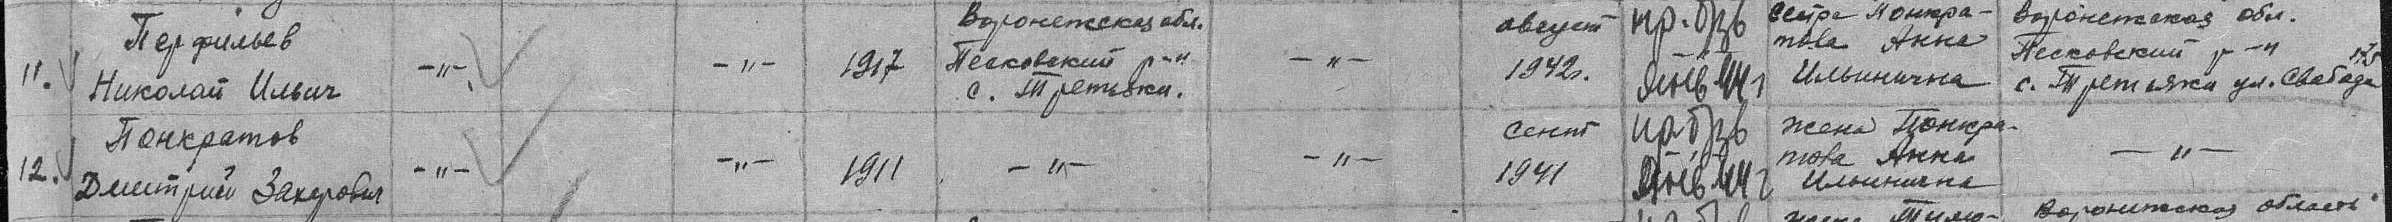 11. Перфильев
Николай Ильич
—„—
—„—
1917
Воронежская обл.
Песковский р-н
с. Третьяки.
—„—
август
1942г.
пр. б/зв
янв 44 г
сестра Понкра-
това Анна
Ильинична
Воронежская обл.
Песковский р-н
с. Третьяки ул. Свабода
12. Понкратов
Дмитрий Захарович
—„—
—„—
1911
—„—
—„—
сент
1941
пр. б/зв
янв 44 г
жена Понкра-
това Анна
Ильинична
—„—
Воронежская область